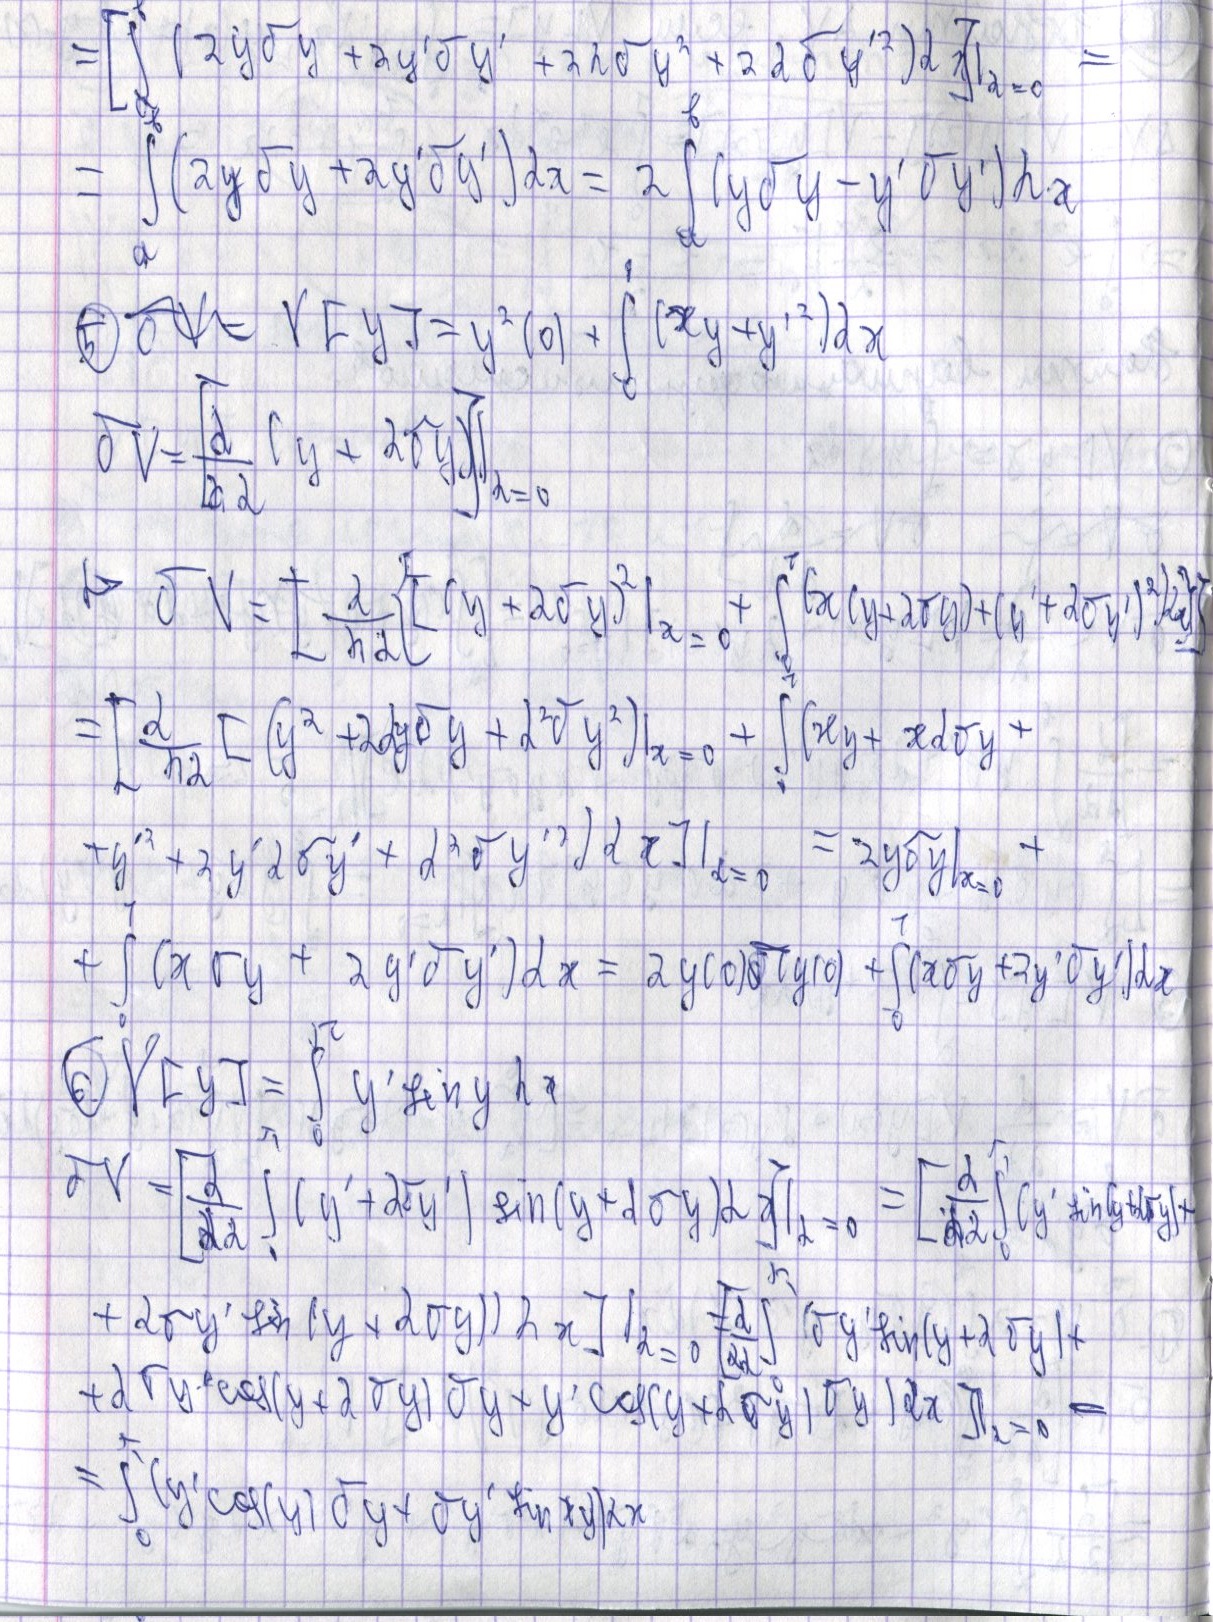 = [∫ (2yδy + 2y'δy' + 2αδy² + 2αδy'²)dx]|α=0 =
= ∫ₐᵇ (2yδy + 2y'δy')dx = 2∫ₐᵇ (yδy − y'δy')dx
⑤ V[y] = y²(0) + ∫₀¹ (xy + y'²)dx
δV = [d/dα (y + αδy)]|α=0
δV = [d/dα [(y + αδy)²|x=0 + ∫₀¹ (x(y + αδy) + (y' + αδy')²)dx]
= [d/dα [(y² + 2αyδy + α²δy²)|x=0 + ∫ (xy + xαδy +
+ y'² + 2y'αδy' + α²δy'²)dx]|α=0 = 2yδy|x=0 +
+ ∫₀¹ (xδy + 2y'δy')dx = 2y(0)δy(0) + ∫₀¹ (xδy + 2y'δy')dx
⑥ V[y] = ∫₀^π y' sin y dx
δV = [d/dα ∫ (y' + αδy') sin(y + αδy)dx]|α=0 = [d/dα ∫₀^π (y' sin(y + αδy) +
+ αδy' sin(y + αδy))dx]|α=0 = [d/dα ∫₀^π (δy' sin(y + αδy) +
+ αδy' cos(y + αδy)δy + y' cos(y + αδy)δy)dx]|α=0 =
= ∫₀^π (y' cos(y)δy + δy' sin y)dx